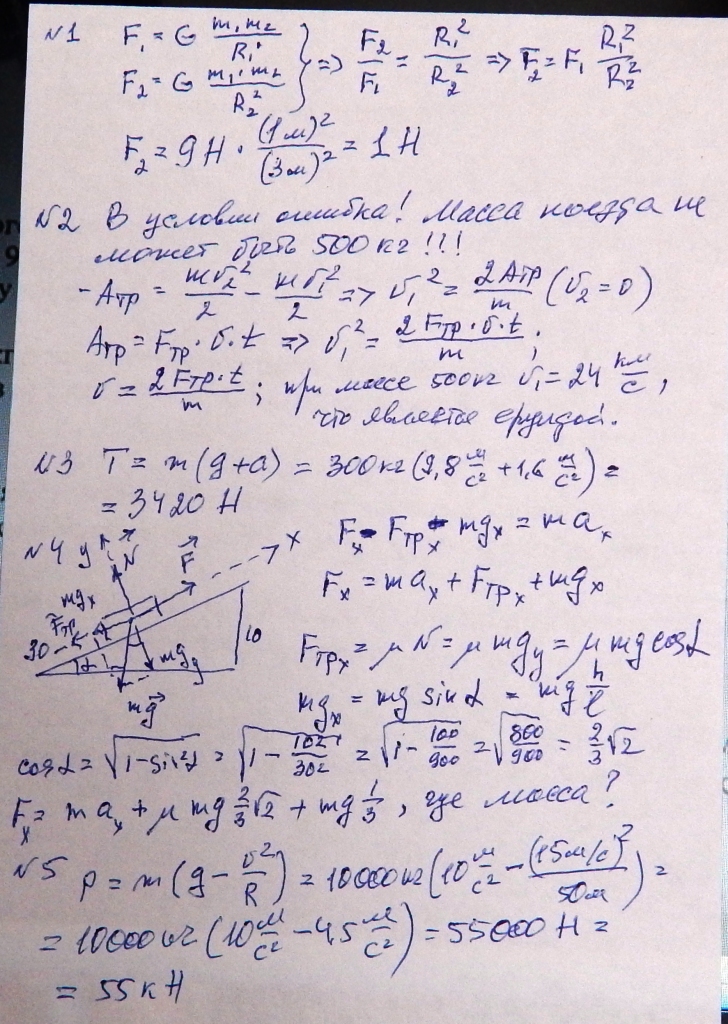 №1 F₁ = G m₁m₂/R₁² } => F₂/F₁ = R₁²/R₂² => F₂ = F₁ R₁²/R₂²
F₂ = G m₁·m₂/R₂²
F₂ = 9Н · (1м)²/(3м)² = 1Н
№2 В условии ошибка! Масса поезда не
может быть 500кг!!!
-Aтр = mv₂²/2 - mv₁²/2 => v₁² = 2Aтр/m (v₂=0)
Aтр = Fтр·v·t => v₁² = 2Fтр·v·t/m ;
v = 2Fтр·t/m ; при массе 500кг v₁ = 24 км/с,
что является ерундой.
№3 T = m(g+a) = 300кг(9,8 м/с² + 1,6 м/с²) =
= 3420 Н
№4 y N F x
mgx Fтр 30 α mgy mg 10
Fx - Fтрx - mgx = maₓ
Fx = maₓ + Fтрx + mgx
Fтрx = μN = μmgy = μmg cosα
mgx = mg sinα = mg h/l
cosα = √(1-sin²α) = √(1 - 10²/30²) = √(1 - 100/900) = √(800/900) = 2/3 √2
Fx = maₓ + μmg 2/3 √2 + mg 1/3, где масса?
№5 P = m(g - v²/R) = 10000кг(10 м/с² - (15м/с)²/50м) =
= 10000кг(10 м/с² - 4,5 м/с²) = 55000Н =
= 55кН